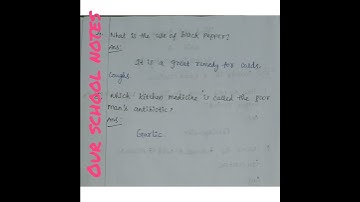 OUR SCHOOL NOTES
What is the use of Black Pepper?
Ans:
It is a great remedy for colds
coughs
which kitchen medicine is called the poor
man's antibiotic?
Ans:
Garlic